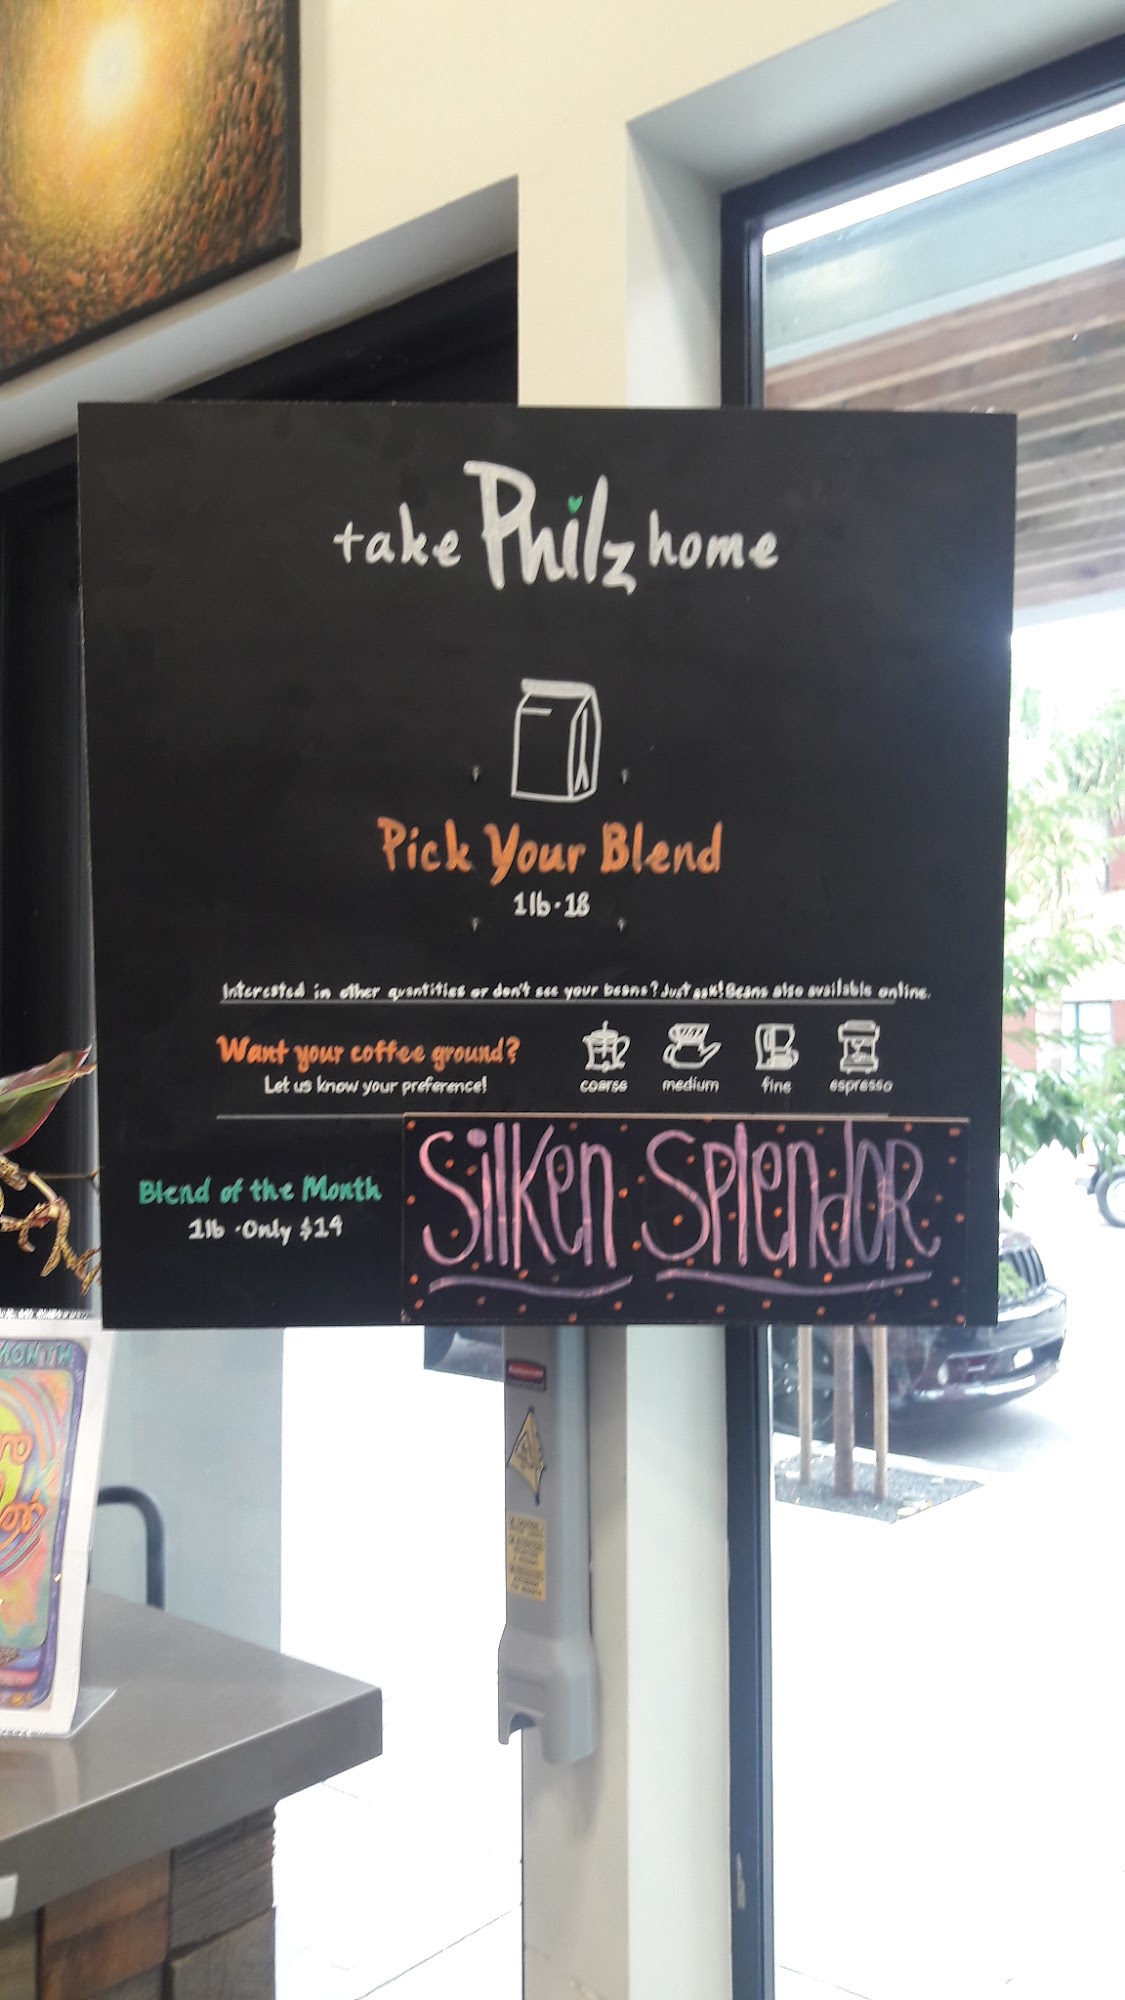 take Philz home
Pick Your Blend
1lb·18
Interested in other quantities or don't see your beans? Just ask! Beans also available online.
Want your coffee ground?
Let us know your preference!
coarse medium fine espresso
Blend of the Month
1lb ·Only $14
Silken Splendor
MONTH